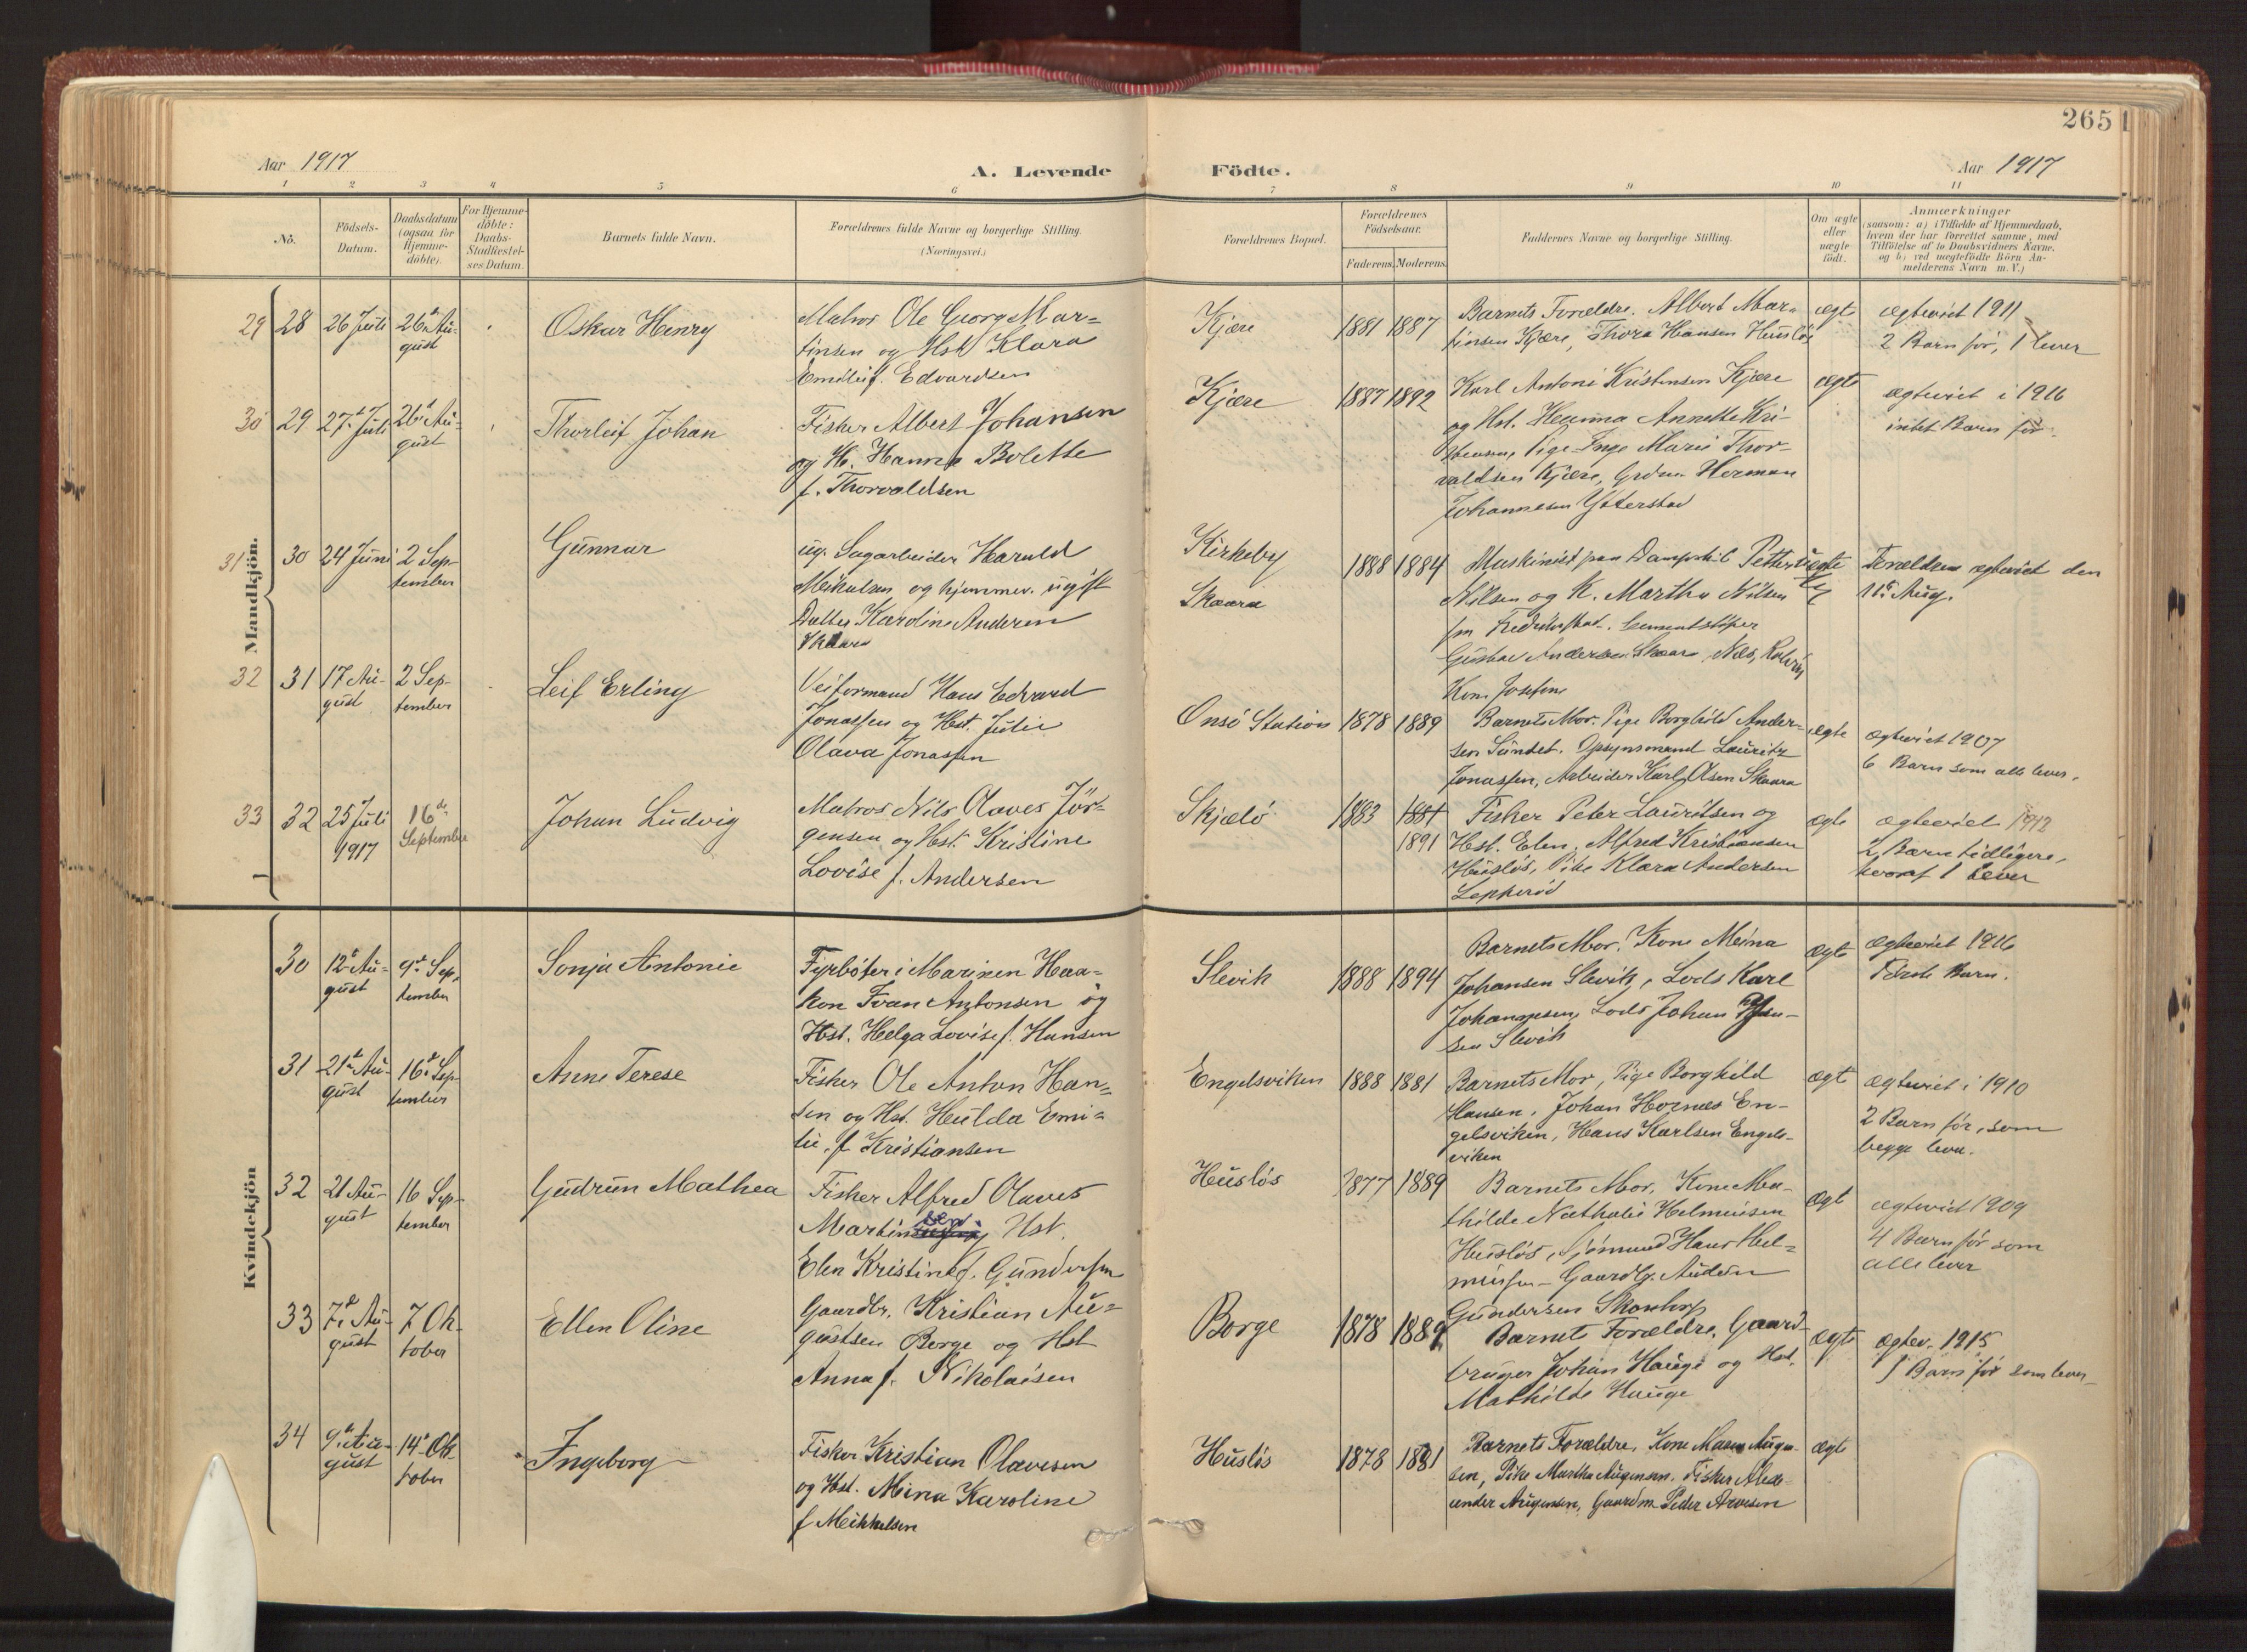 265
Aar 1917
A. Levende
Födte.
Aar 1917
1 2 3 4 5 6 7 8 9 10 11
No.
Födsels-
Datum.
Daabsdatum
(ogsaa for
Hjemme-
döbte).
For Hjemme-
döbte:
Daabs-
Stadfæstel-
ses Datum.
Barnets fulde Navn.
Forældrenes fulde Navne og borgerlige Stilling.
(Næringsvei.)
Forældrenes Bopæl.
Forældrenes
Födselsaar.
Faderens. Moderens.
Faddernes Navne og borgerlige Stilling.
Om ægte
eller
uægte
födt.
Anmærkninger
(saasom: a) i Tilfælde af Hjemmedaab,
hvem der har forrettet samme, med
Tilföielse af to Daabsvidners Navne.
og b) ved uægtefödte Börn An-
melderens Navn m. V.)
Mandkjön.
29 28
26 Juli
26d Au-
gust
Oskar Henry
Matros Ole Georg Mar-
tinsen og Hst Klara
Emilie f. Edvardsen
Kjære
1881 1887
Barnets Forældre. Albert Mar-
tinsen Kjære, Thora Hansen Husløs
ægte
ægteviet 1911
2 Barn før, 1 lever
30 29
27d Juli
26d Au-
gust
Thorleif Johan
Fisker Albert Johansen
og H. Hanna Bolette
f. Thorvaldsen
Kjære
1887 1892
Karl Antoni Kristensen Kjære
og Hst. Hanna Annette Kri-
stensen, Pige Inga Marie Thor-
valdsen Kjære, Herman
Johannesen Ytterstad
ægte
ægteviet i 1916
intet Barn før.
31 30
24 Juni
2 Sep-
tember
Gunnar
ug. Sagarbeider Harald
Meikalsen og hjemmev. ugift
Datter Karoline Andersen
Skaara
Kirkeby
Skaara
1888 1884
Maskinist paa Dampskib Petter
Nilsen og K. Martha Nilsen
fra Fredrikstad. Cementstøper
Gustav Andersen Skaara, Næs, Rolvsøy
Kone Josefine
uægte
Forældrene ægteviet den
11te Aug.
32 31
17 Au-
gust
2 Sep-
tember
Leif Erling
Veiformand Hans Edvard
Jonassen og Hst. Julie
Olava Jonassen
Onsö Station
1878 1889
Barnets Mor. Pige Borghild Ander-
sen Sundet. Opsynsmand Lauritz
Jonassen, Arbeider Karl Olsen Skaara
ægte
ægteviet 1907
6 Barn som alle lever.
33 32
25 Juli
1917
16de
September
Johan Ludvig
Matros Nils Olaves Jör-
gensen og Hst. Kristine
Lovise f. Andersen
Skjælö
1883 1881
1891
Fisker Peter Lauritsen og
Hst. Elen, Alfred Kristiansen
Husløs, Pike Klara Andersen
Lepperød
ægte
ægteviet 1912
2 Barn tidligere,
hvoraf 1 lever
Kvindekjön
30
12te Au-
gust
9d Sep-
tember
Sonja Antonie
Fyrbøter i Marinen Haa-
kon Ivan Antonsen og
Hst. Helga Lovise f. Hansen
Slevik
1888 1894
Barnets Mor. Kone Meina
Johansen Slevik, Lods Karl
Johannesen, Lods Johan
sen Slevik
ægte
ægteviet 1916
Første Barn.
31
21d Au-
gust
16d Sep-
tember
Anne Terese
Fisker Ole Anton Han-
sen og Hst. Hulda Emi-
lie, f Kristiansen
Engelsviken
1888 1881
Barnets Mor, Pige Borghild
Hansen, Johan Hornæs En-
gelsviken, Hans Karlsen Engels-
viken
ægte
ægteviet i 1910
2 Barn før, som
begge lever.
32
21 Au-
gust
16 Sep-
tember
Gudrun Mathea
Fisker Alfred Olaves
Martinsen Hst.
Elen Kristine f. Gundersen
Husløs
1877 1889
Barnets Mor, Kone Ma-
thilde Nathalie Helmersen
Husløs, Sjömand Hans Hel-
mersen - Gaardbr. Anders
Gundersen
ægte
ægteviet 1909
4 Barn før som
alle lever
33
7d Au-
gust
7 Ok-
tober
Ellen Oline
Gaardbr. Kristian Au-
gustsen Borge og Hst
Anna f. Nikolaisen
Borge
1878 1889
Barnets Forældre, Gaard-
bruger Johan Hauge og Hst.
Mathilde Hauge
ægte
ægtev. 1915
1 Barn før som lever
34
9d Au-
gust
14d Ok-
tober
Ingeborg
Fisker Kristian Olavesen
og Hst. Mina Karoline
f Meikkelsen
Husløs
1878 1881
Barnets Forældre, Kone Maren Augen-
sen, Pike Martha Augensen. Fisker Alex-
ander Augensen, Gaardm. Peder Arvesen
ægte